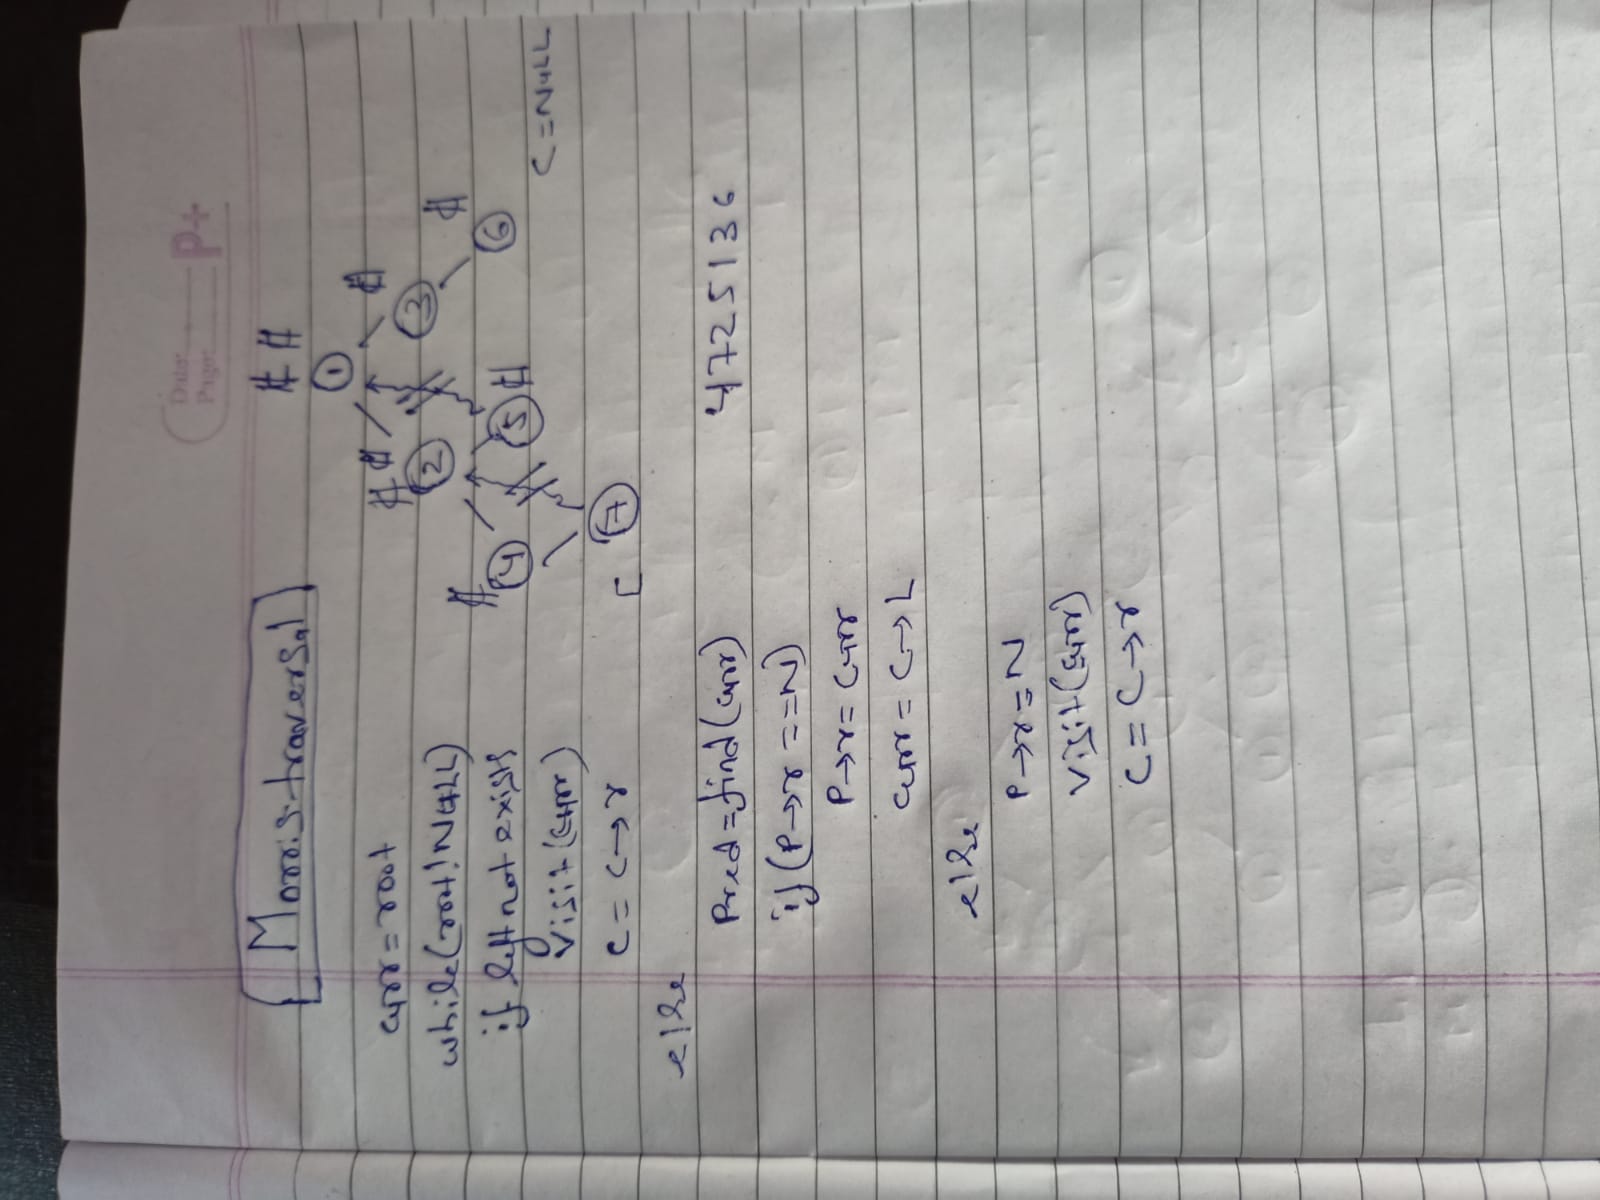 Date:
Page:
P+
Morris traversal
curr = root
while(root! NULL)
if left not exists
visit(curr)
C = C→r
else
Pred = find(curr)
if (P→r == N)
P→r = curr
curr = C→L
else
P→r = N
visit(curr)
C = C→r
1
2
3
4
5
6
7
C
C = NULL
4725136